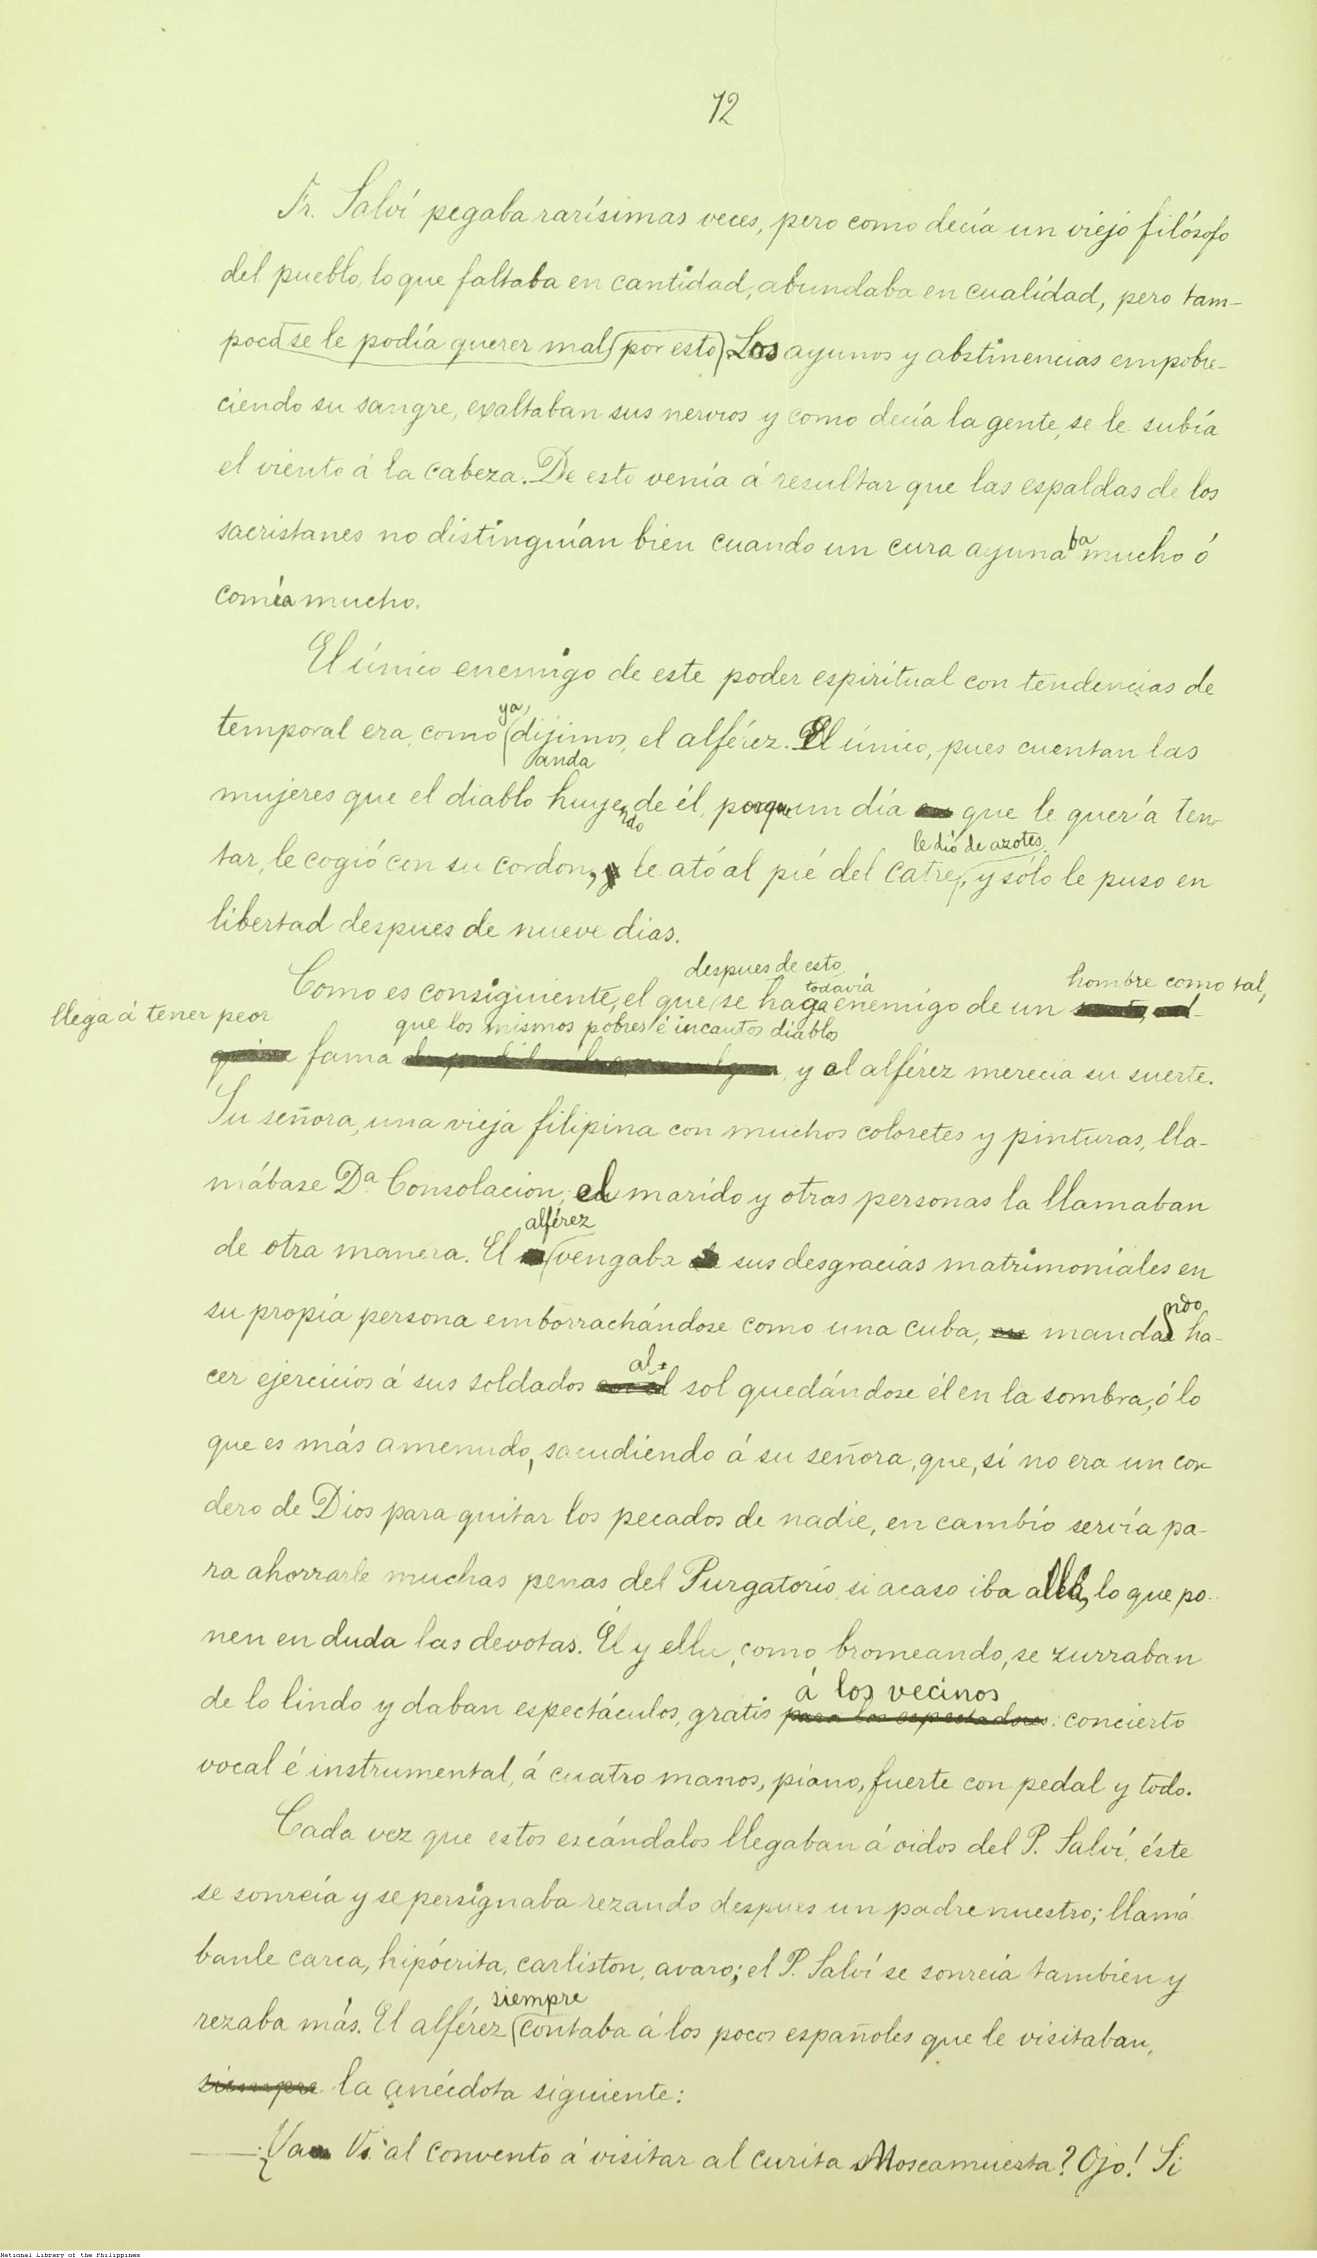 72
Fr. Salví pegaba rarísimas veces, pero como decía un viejo filósofo
del pueblo, lo que faltaba en cantidad, abundaba en cualidad, pero tam-
poco se le podía querer mal por esto. Los ayunos y abstinencias empobre-
ciendo su sangre, exaltaban sus nervios y como decía la gente, se le subía
el viento á la cabeza. De esto venía á resultar que las espaldas de los
sacristanes no distinguían bien cuando un cura ayunaba mucho ó
comía mucho.
El único enemigo de este poder espiritual con tendencias de
temporal era, como ya dijimos, el alférez. El único, pues cuentan las
anda
mujeres que el diablo huyendo de él, porque un día que le quería ten-
le dió de azotes,
tar, le cogió con su cordon, le ató al pié del catre, y sólo le puso en
libertad despues de nueve dias.
despues de esto
todavía
hombre como tal,
Como es consiguiente, el que se haga enemigo de un
llega á tener peor
que los mismos pobres é incautos diablos
fama y el alférez merecia su suerte.
Su señora, una vieja filipina con muchos coloretes y pinturas, lla-
mábase Dª Consolacion, el marido y otras personas la llamaban
alférez
de otra manera. El vengaba sus desgracias matrimoniales en
su propia persona emborrachándose como una cuba, mandando ha-
al
cer ejercicios á sus soldados sol quedándose él en la sombra, ó lo
que es más amenudo, sacudiendo á su señora, que, si no era un cor-
dero de Dios para quitar los pecados de nadie, en cambio servía pa-
ra ahorrarle muchas penas del Purgatorio, si acaso iba allá, lo que po-
nen en duda las devotas. Él y ella, como bromeando, se zurraban
á los vecinos
de lo lindo y daban espectáculos gratis para los espectadores: concierto
vocal é instrumental, á cuatro manos, piano, fuerte con pedal y todo.
Cada vez que estos escándalos llegaban á oidos del P. Salví, éste
se sonreía y se persignaba rezando despues un padre nuestro; llamá
banle carca, hipócrita, carliston, avaro; el P. Salví se sonreía también y
siempre
rezaba más. El alférez contaba á los pocos españoles que le visitaban,
siempre la anécdota siguiente:
— Va V. al convento á visitar al curita Moscamuerta? Ojo! Si
National Library of the Philippines